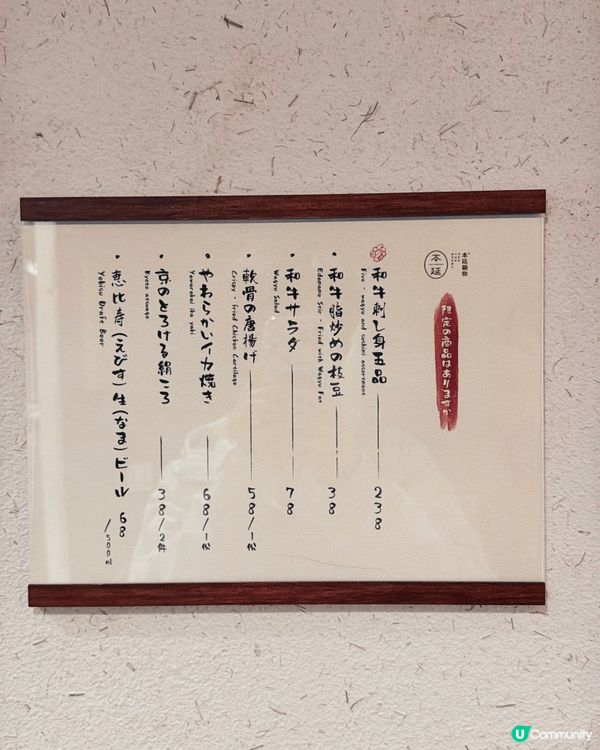 本延鍋物
本延
限定の商品はありますか
和牛刺し身五品 238
Five - wagyu and sushimi assortment
・和牛脂炒めの枝豆 38
Edamame Stir - Fried with Wagyu Fat
・和牛サラダ 78
Wagyu Salad
・軟骨の唐揚げ 58/1份
Crispy - fried Chicken Cartilage
・やわらかいイカ焼き 68/1份
Yawaraka ika yaki
・京のとろける絹ころ 38/2件
・恵比寿(えびす)生(なま)ビール 68/500ml
Yebisu Draft Beer
U Community